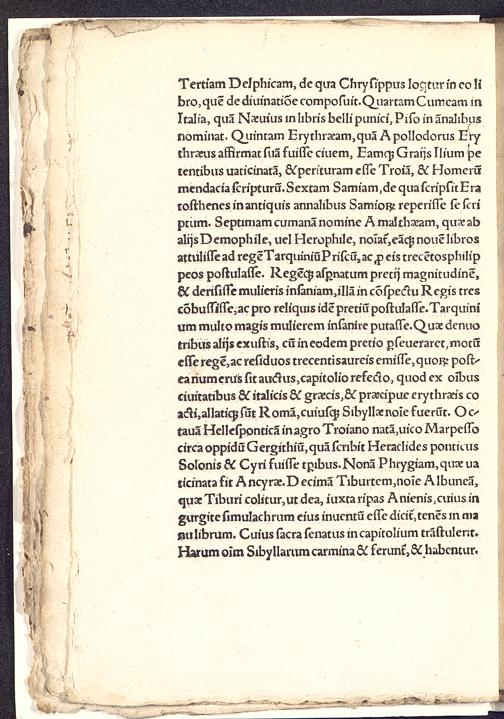 Tertiam Delphicam, de qua Chrysippus loq̃tur in eo li
bro, quē de diuinatiōe composuit. Quartam Cumeam in
Italia, quā Næuius in libris belli punici, Piso in ānalibus
nominat. Quintam Erythræam, quā Apollodorus Ery
thræus affirmat suā fuisse ciuem, Eamqꝫ Graijs Ilium pe
tentibus uaticinatā, & perituram esse Troiā, & Homerū
mendacia scripturū. Sextam Samiam, de qua scripsit Era
tosthenes in antiquis annalibus Samioꝝ reperisse se scri
ptum. Septimam cumanā nomine Amalthæam, quæ ab
alijs Demophile, uel Herophile, noiat̃, eāqꝫ nouē libros
attulisse ad regē Tarquiniū Priscū, ac ꝓ eis trecētos philip
peos postulasse. Regēqꝫ aspnatum pretij magnitudinē,
& derisisse mulieris insaniam, illā in cōspectu Regis tres
cōbussisse, ac pro reliquis idē pretiū postulasse. Tarquini
um multo magis mulierem insanire putasse. Quæ denuo
tribus alijs exustis, cū in eodem pretio ꝑseueraret, motū
esse regē, ac residuos trecentis aureis emisse, quoꝝ post-
ea numerus sit auctus, capitolio refecto, quod ex oībus
ciuitatibus & italicis & græcis, & præcipue erythræis co
acti, allatiqꝫ sūt Romā, cuiusqꝫ Sibyllæ noīe fuerūt. Oc-
tauā Hellesponticā in agro Troiano natā, uico Marpesso
circa oppidū Gergithiū, quā scribit Heraclides ponticus
Solonis & Cyri fuisse tꝑibus. Nonā Phrygiam, quæ ua
ticinata sit Ancyræ. Decimā Tiburtem, noīe Albuneā,
quæ Tiburi colitur, ut dea, iuxta ripas Anienis, cuius in
gurgite simulachrum eius inuentū esse dicit̃, tenēs in ma
nu librum. Cuius sacra senatus in capitolium trāstulerit.
Harum oīm Sibyllarum carmina & ferunt̃, & habentur.